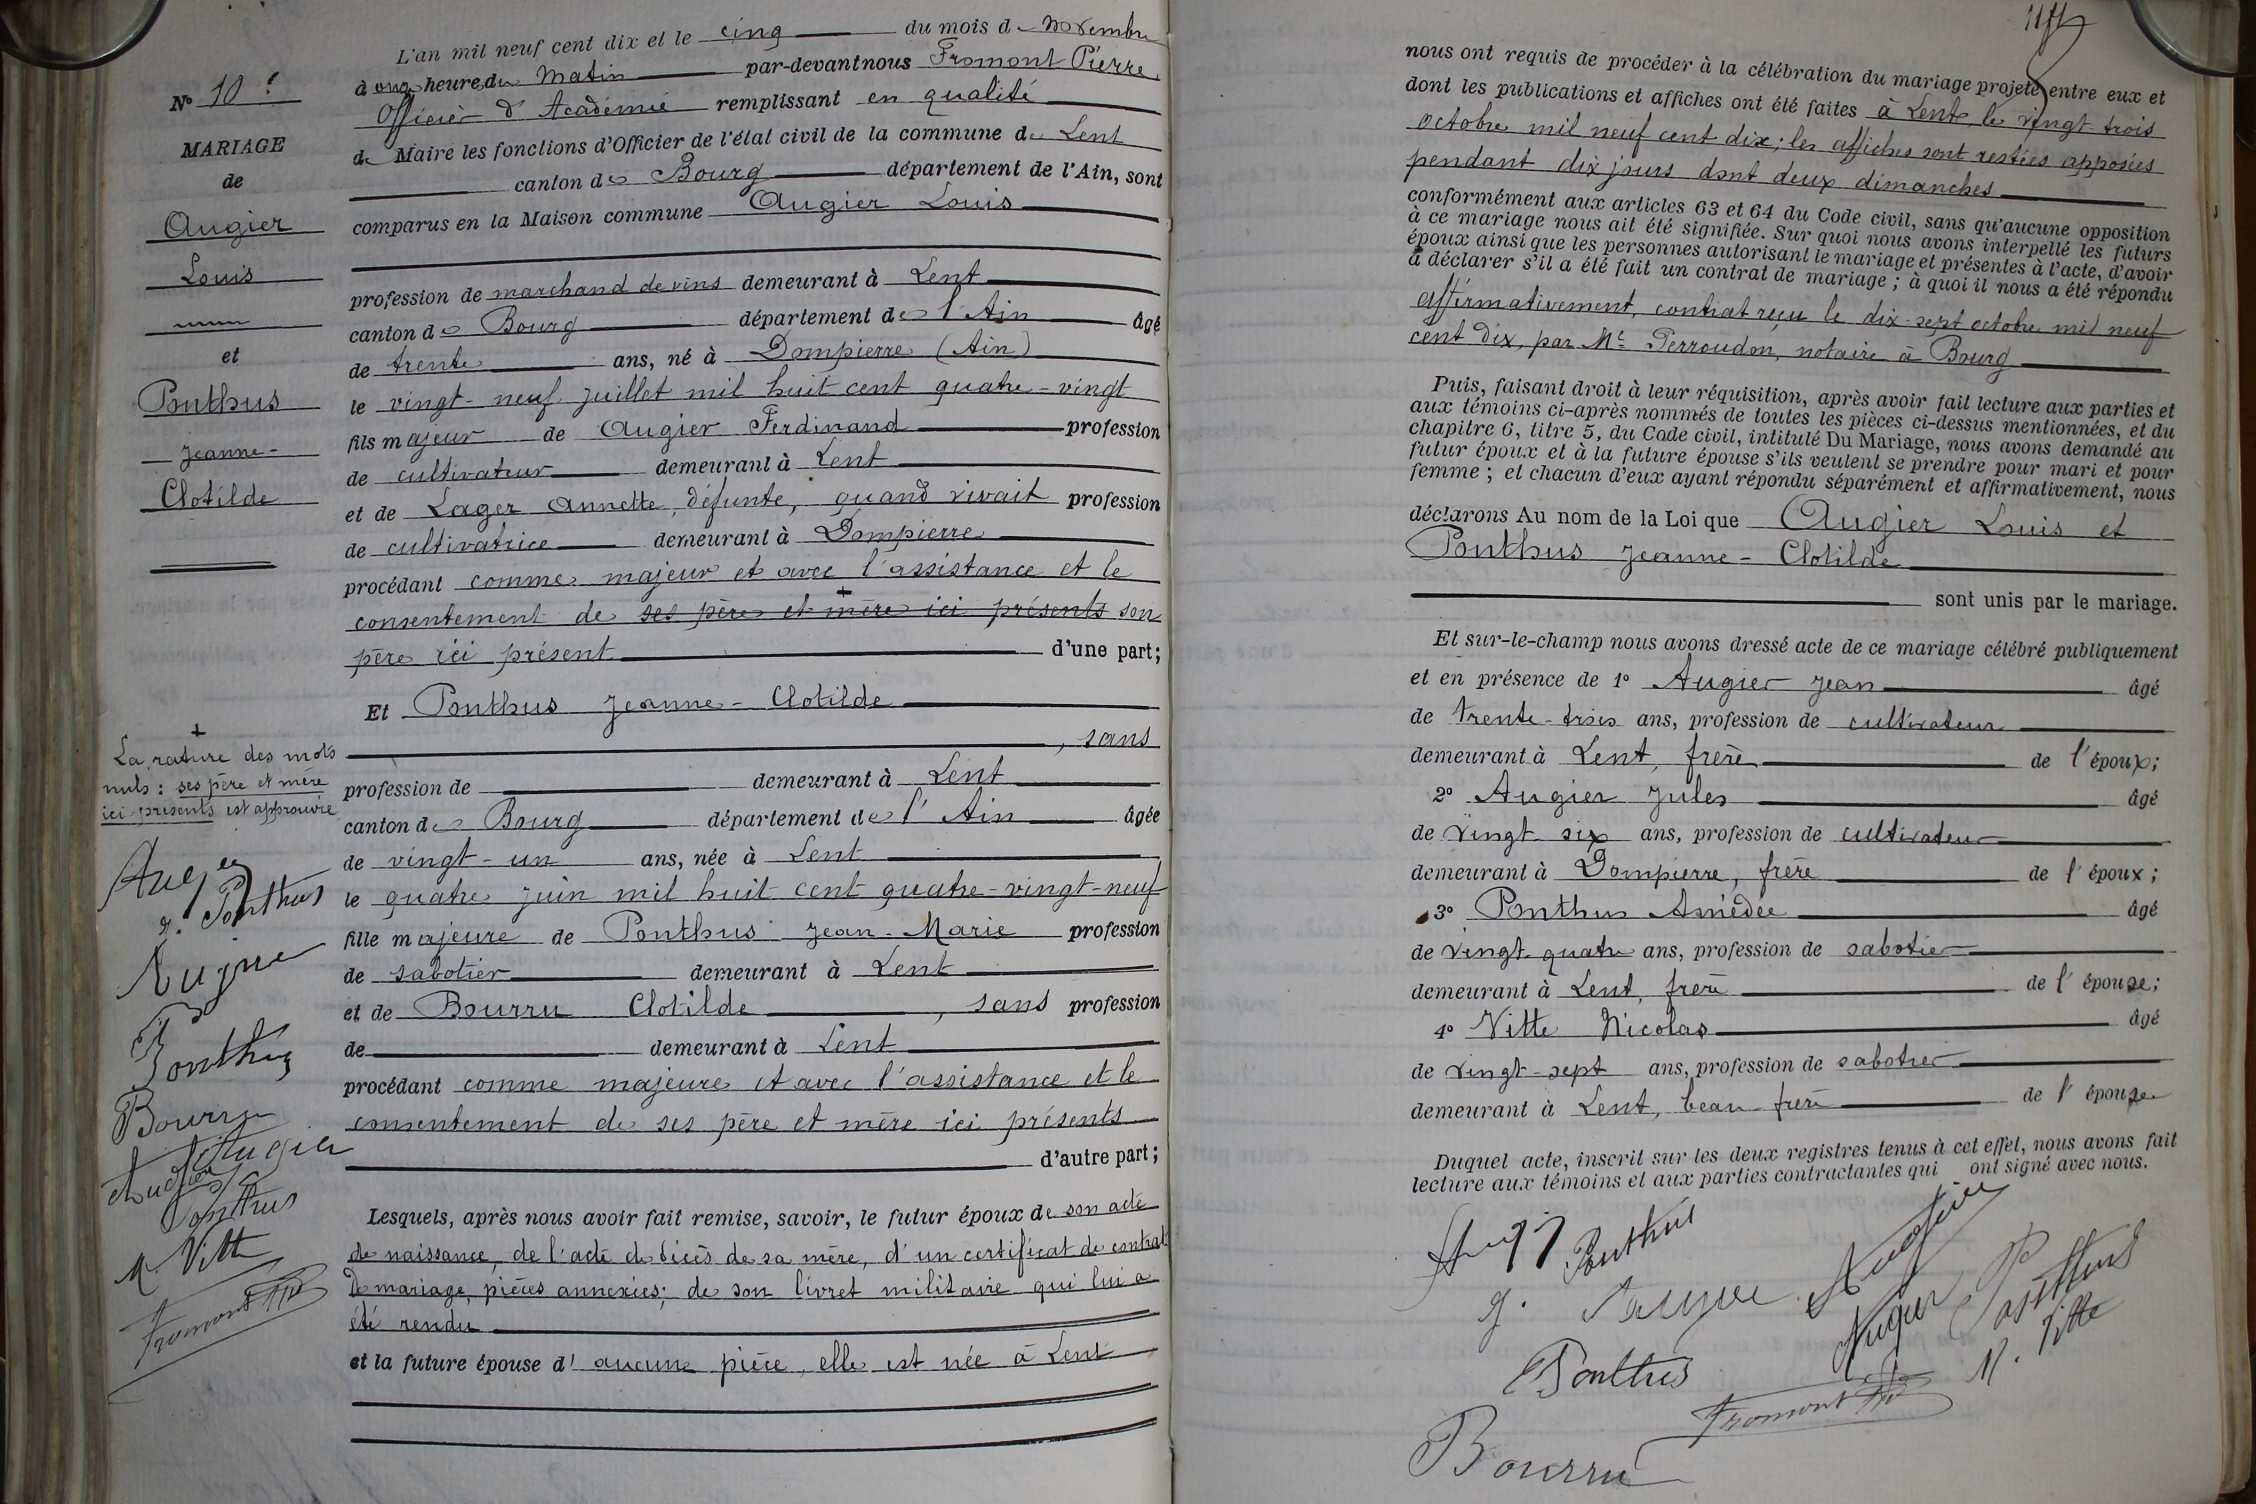 N° 10e
MARIAGE
de
Augier
Louis
et
Ponthus
Jeanne-
Clotilde
L'an mil neuf cent dix et le cinq du mois de Novembre
à onze heure du Matin par-devant nous Fromont Pierre,
Officier d'Académie remplissant en qualité
de Maire les fonctions d'Officier de l'état civil de la commune de Lent
canton de Bourg département de l'Ain, sont
comparus en la Maison commune Augier Louis
profession de marchand de vins demeurant à Lent
canton de Bourg département de l'Ain âgé
de trente ans, né à Dompierre (Ain)
le vingt-neuf juillet mil huit cent quatre-vingt
fils majeur de Augier Ferdinand profession
de cultivateur demeurant à Lent
et de Lager Annette, défunte, quand vivait profession
de cultivatrice demeurant à Dompierre
procédant comme majeur et avec l'assistance et le
consentement de ses père et mère ici présents son
père ici présent d'une part;
Et Ponthus Jeanne-Clotilde
, sans
profession de demeurant à Lent
canton de Bourg département de l'Ain âgée
de vingt-un ans, née à Lent
le quatre juin mil huit cent quatre-vingt-neuf
fille majeure de Ponthus Jean-Marie profession
de sabotier demeurant à Lent
et de Bourru Clotilde, sans profession
de demeurant à Lent
procédant comme majeure et avec l'assistance et le
consentement de ses père et mère ici présents
d'autre part;
Lesquels, après nous avoir fait remise, savoir, le futur époux de son acte
de naissance, de l'acte de décès de sa mère, d'un certificat de contrat
de mariage, pièces annexées; de son livret militaire qui lui a
été rendu
et la future épouse d'aucune pièce, elle est née à Lent
+
La rature des mots
nuls : ses père et mère
ici présents est approuvée
Augier
J. Ponthus
Augier
Ponthus
Bourru
Augier
Augier
Ponthus
N. Vitte
Fromont Pre
nous ont requis de procéder à la célébration du mariage projeté entre eux et
dont les publications et affiches ont été faites à Lent, le vingt-trois
octobre mil neuf cent dix; les affiches sont restées apposées
pendant dix jours dont deux dimanches
conformément aux articles 63 et 64 du Code civil, sans qu'aucune opposition
à ce mariage nous ait été signifiée. Sur quoi nous avons interpellé les futurs
époux ainsi que les personnes autorisant le mariage et présentes à l'acte, d'avoir
à déclarer s'il a été fait un contrat de mariage; à quoi il nous a été répondu
affirmativement, contrat reçu le dix-sept octobre mil neuf
cent dix, par Me Perroudon, notaire à Bourg
Puis, faisant droit à leur réquisition, après avoir fait lecture aux parties et
aux témoins ci-après nommés de toutes les pièces ci-dessus mentionnées, et du
chapitre 6, titre 5, du Code civil, intitulé Du Mariage, nous avons demandé au
futur époux et à la future épouse s'ils veulent se prendre pour mari et pour
femme; et chacun d'eux ayant répondu séparément et affirmativement, nous
déclarons Au nom de la Loi que Augier Louis et
Ponthus Jeanne-Clotilde
sont unis par le mariage.
Et sur-le-champ nous avons dressé acte de ce mariage célébré publiquement
et en présence de 1° Augier Jean âgé
de trente-trois ans, profession de cultivateur
demeurant à Lent, frère de l'époux;
2° Augier Jules âgé
de vingt six ans, profession de cultivateur
demeurant à Dompierre, frère de l'époux;
3° Ponthus Amédée âgé
de vingt-quatre ans, profession de sabotier
demeurant à Lent, frère de l'épouse;
4° Vitte Nicolas âgé
de vingt-sept ans, profession de sabotier
demeurant à Lent, beau-frère de l'épouse
Duquel acte, inscrit sur les deux registres tenus à cet effet, nous avons fait
lecture aux témoins et aux parties contractantes qui ont signé avec nous.
J. Ponthus
Augier
Augier
Ponthus
Augier
Ponthus
N. Vitte
Fromont Pre
Bourru